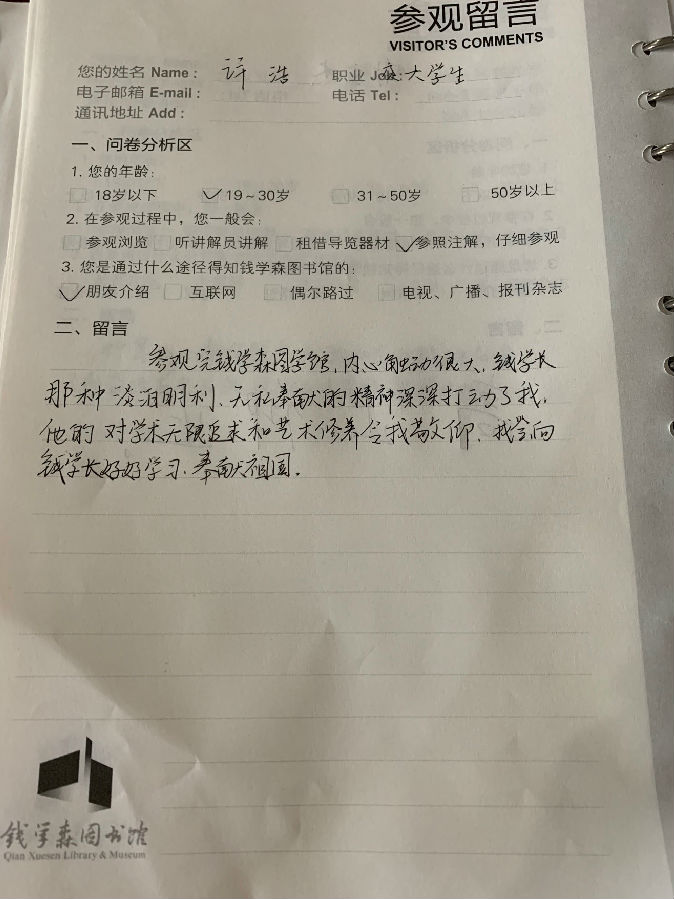 参观留言
VISITOR'S COMMENTS
您的姓名 Name： 许 浩 职业 Job: 交大学生
电子邮箱 E-mail： 电话 Tel：
通讯地址 Add：
一、问卷分析区
1. 您的年龄：
18岁以下 19～30岁 31～50岁 50岁以上
2. 在参观过程中，您一般会：
参观浏览 听讲解员讲解 租借导览器材 参照注解，仔细参观
3. 您是通过什么途径得知钱学森图书馆的：
朋友介绍 互联网 偶尔路过 电视、广播、报刊杂志
二、留言
参观完钱学森图学馆，内心触动很大，钱学长
那种淡泊明利、无私奉献的精神深深打动了我，
他的对学术无限追求和艺术修养令我敬仰，我会向
钱学长好好学习、奉献祖国。
钱学森图书馆
Qian Xuesen Library & Museum